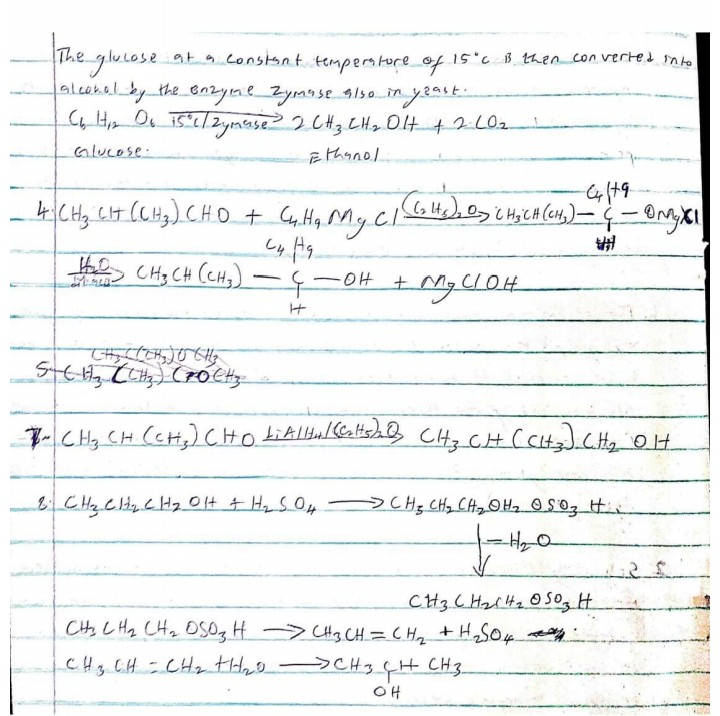 The glucose at a constant temperature of 15°C is then converted into
alcohol by the enzyme zymase also in yeast.
C6 H12 O6 15°C/Zymase → 2 CH3 CH2 OH + 2 CO2
Glucose. Ethanol
C4 H9
4. CH3 CH (CH3) CHO + C4 H9 Mg Cl (C2 H5)2 O → CH3CH(CH3) — C — O Mg Cl
C4 H9 H
H2O → CH3 CH (CH3) — C — OH + Mg Cl OH
H
CH3 C(CH3) O CH3
5. CH3 C(CH3) CH3
7. CH3 CH (CH3) CHO LiAlH4/(C2H5)2O → CH3 CH (CH3) CH2 OH
8. CH3 CH2 CH2 OH + H2 SO4 → CH3 CH2 CH2 OH2 OSO3 H
↓ — H2 O
CH3 CH2 CH2 OSO3 H
CH3 CH2 CH2 OSO3 H → CH3 CH = CH2 + H2SO4
CH3 CH = CH2 + H2O → CH3 CH CH3
OH